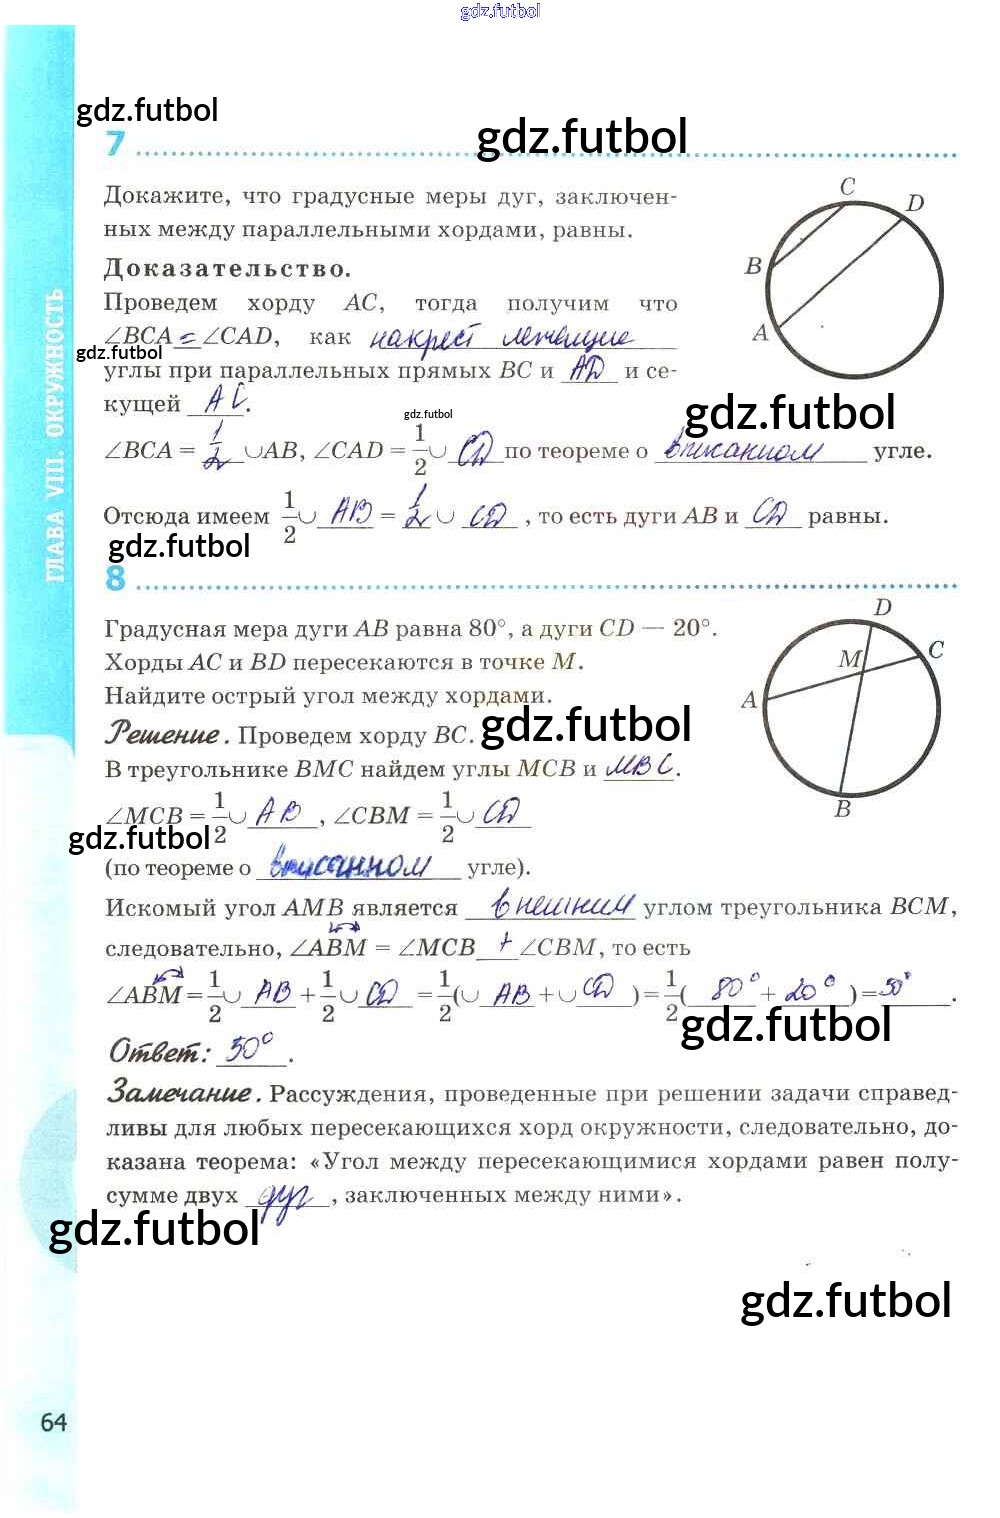 gdz.futbol
gdz.futbol
7
gdz.futbol
Докажите, что градусные меры дуг, заключен-
ных между параллельными хордами, равны.
Доказательство.
Проведем хорду AC, тогда получим что
∠BCA = ∠CAD, как накрест лежащие
gdz.futbol
углы при параллельных прямых BC и AD и се-
кущей AC.
gdz.futbol
gdz.futbol
∠BCA = 1/2 ∪AB, ∠CAD = 1/2 ∪ CD по теореме о вписанном угле.
Отсюда имеем 1/2 ∪ AB = 1/2 ∪ CD , то есть дуги AB и CD равны.
gdz.futbol
C
D
B
A
8
Градусная мера дуги AB равна 80°, а дуги CD — 20°.
Хорды AC и BD пересекаются в точке M.
Найдите острый угол между хордами.
gdz.futbol
Решение. Проведем хорду BC.
В треугольнике BMC найдем углы MCB и MBC.
∠MCB = 1/2 ∪ AB, ∠CBM = 1/2 ∪ CD
gdz.futbol
(по теореме о вписанном угле).
D
C
M
A
B
Искомый угол AMB является внешним углом треугольника BCM,
следовательно, ∠ABM = ∠MCB + ∠CBM, то есть
∠ABM = 1/2 ∪ AB + 1/2 ∪ CD = 1/2(∪ AB + ∪ CD) = 1/2( 80° + 20°) = 50°.
gdz.futbol
Ответ: 50°.
Замечание. Рассуждения, проведенные при решении задачи справед-
ливы для любых пересекающихся хорд окружности, следовательно, до-
казана теорема: «Угол между пересекающимися хордами равен полу-
сумме двух дуг, заключенных между ними».
gdz.futbol
gdz.futbol
ГЛАВА VIII. ОКРУЖНОСТЬ
64